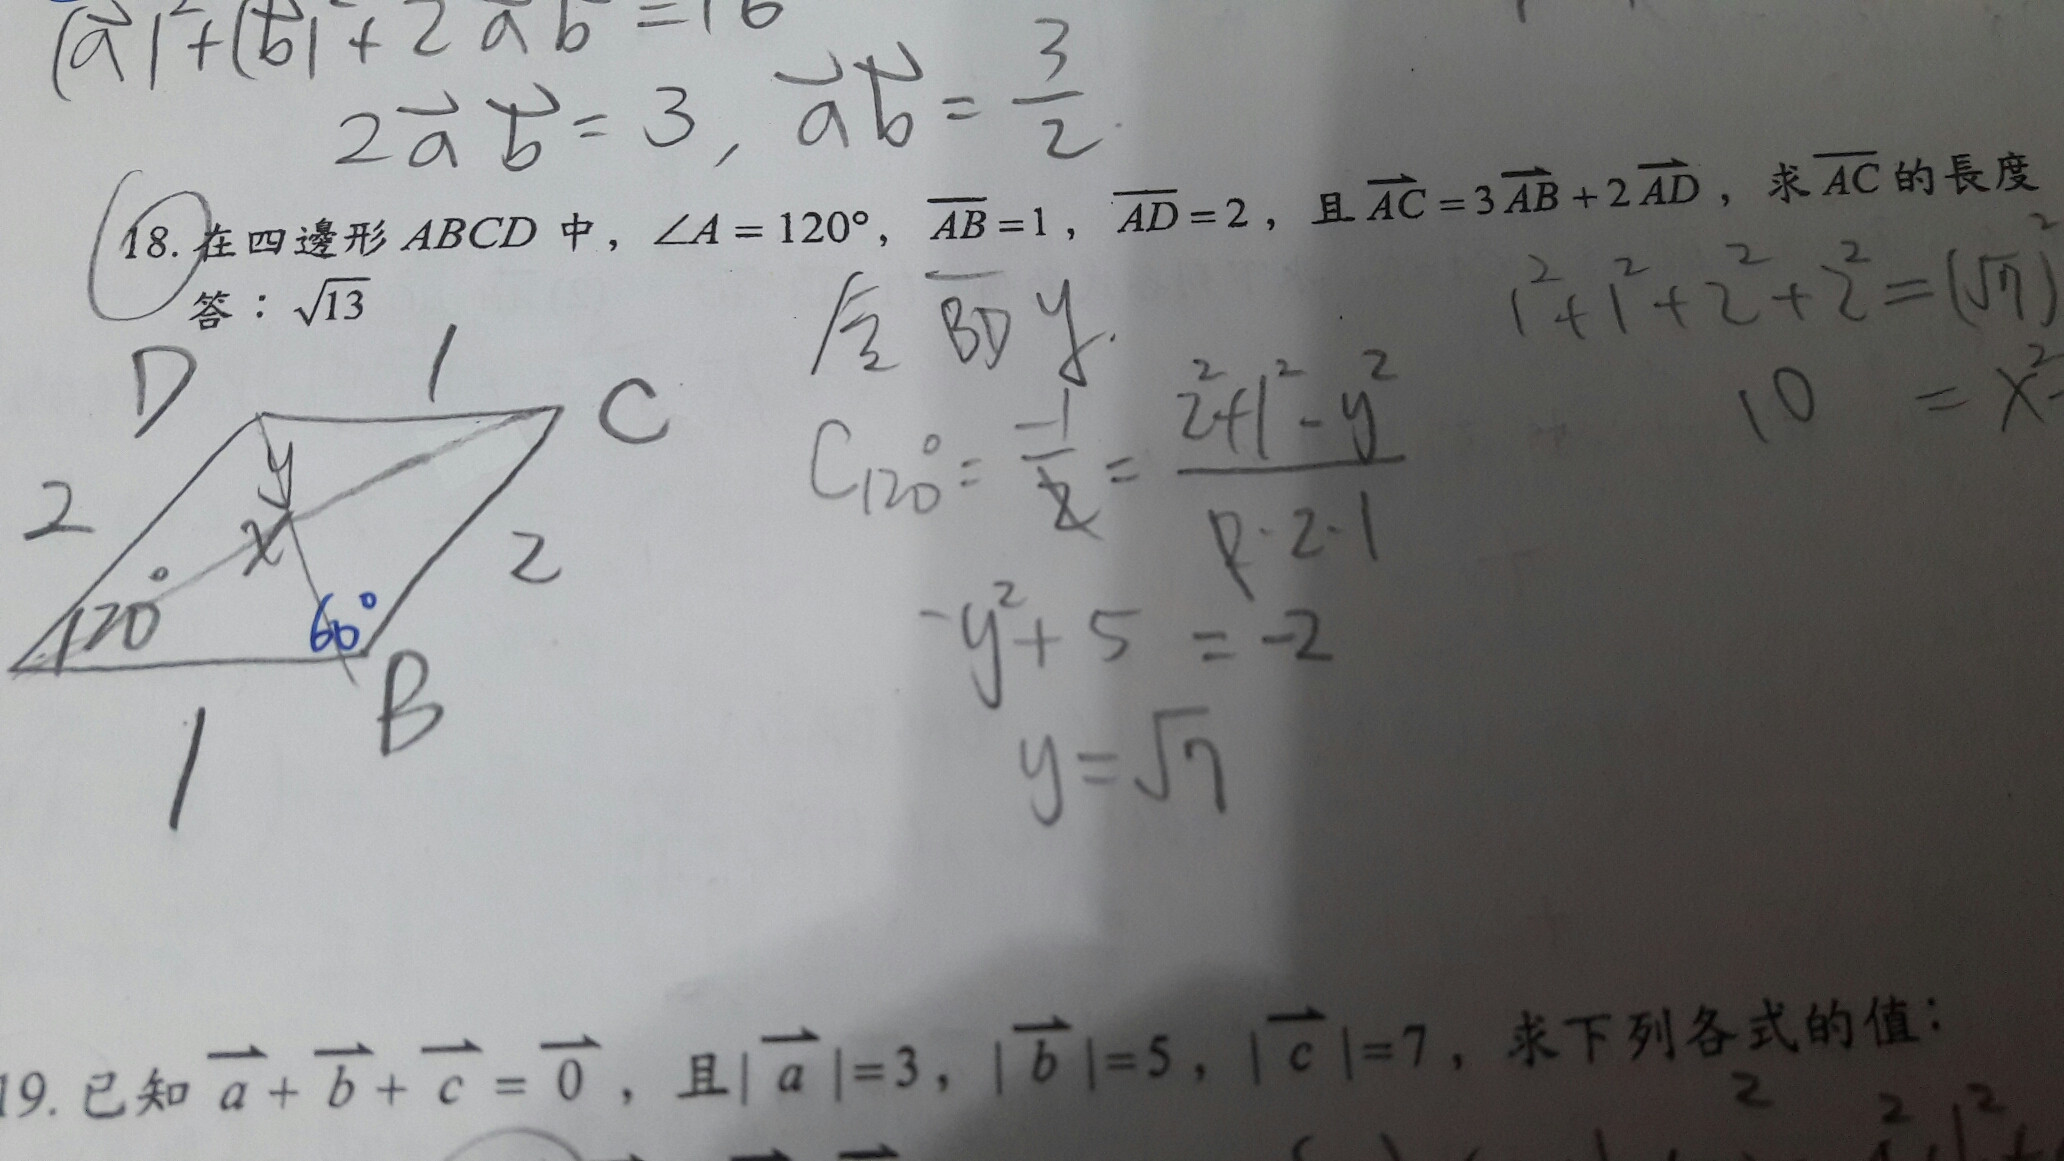 |a|²+|b|²+2ab=16
2ab=3, ab=3/2
18. 在四邊形 ABCD 中，∠A = 120°，AB=1，AD=2，且AC=3AB+2AD，求AC的長度
答：√13
D 1 C
2 y x 2
120° 60°
B
1
BD y.
C120°=-1/2=2²+1²-y²/2·2·1
-y²+5=-2
y=√7
1²+1²+2²+2²=(√7)²
10 = x²
19. 已知 a + b + c = 0，且| a |=3，| b |=5，| c |=7，求下列各式的值：